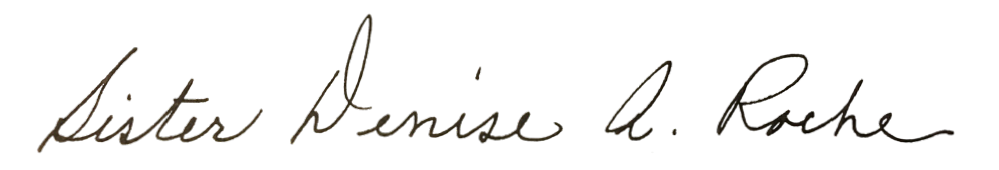 Sister Denise A. Roche